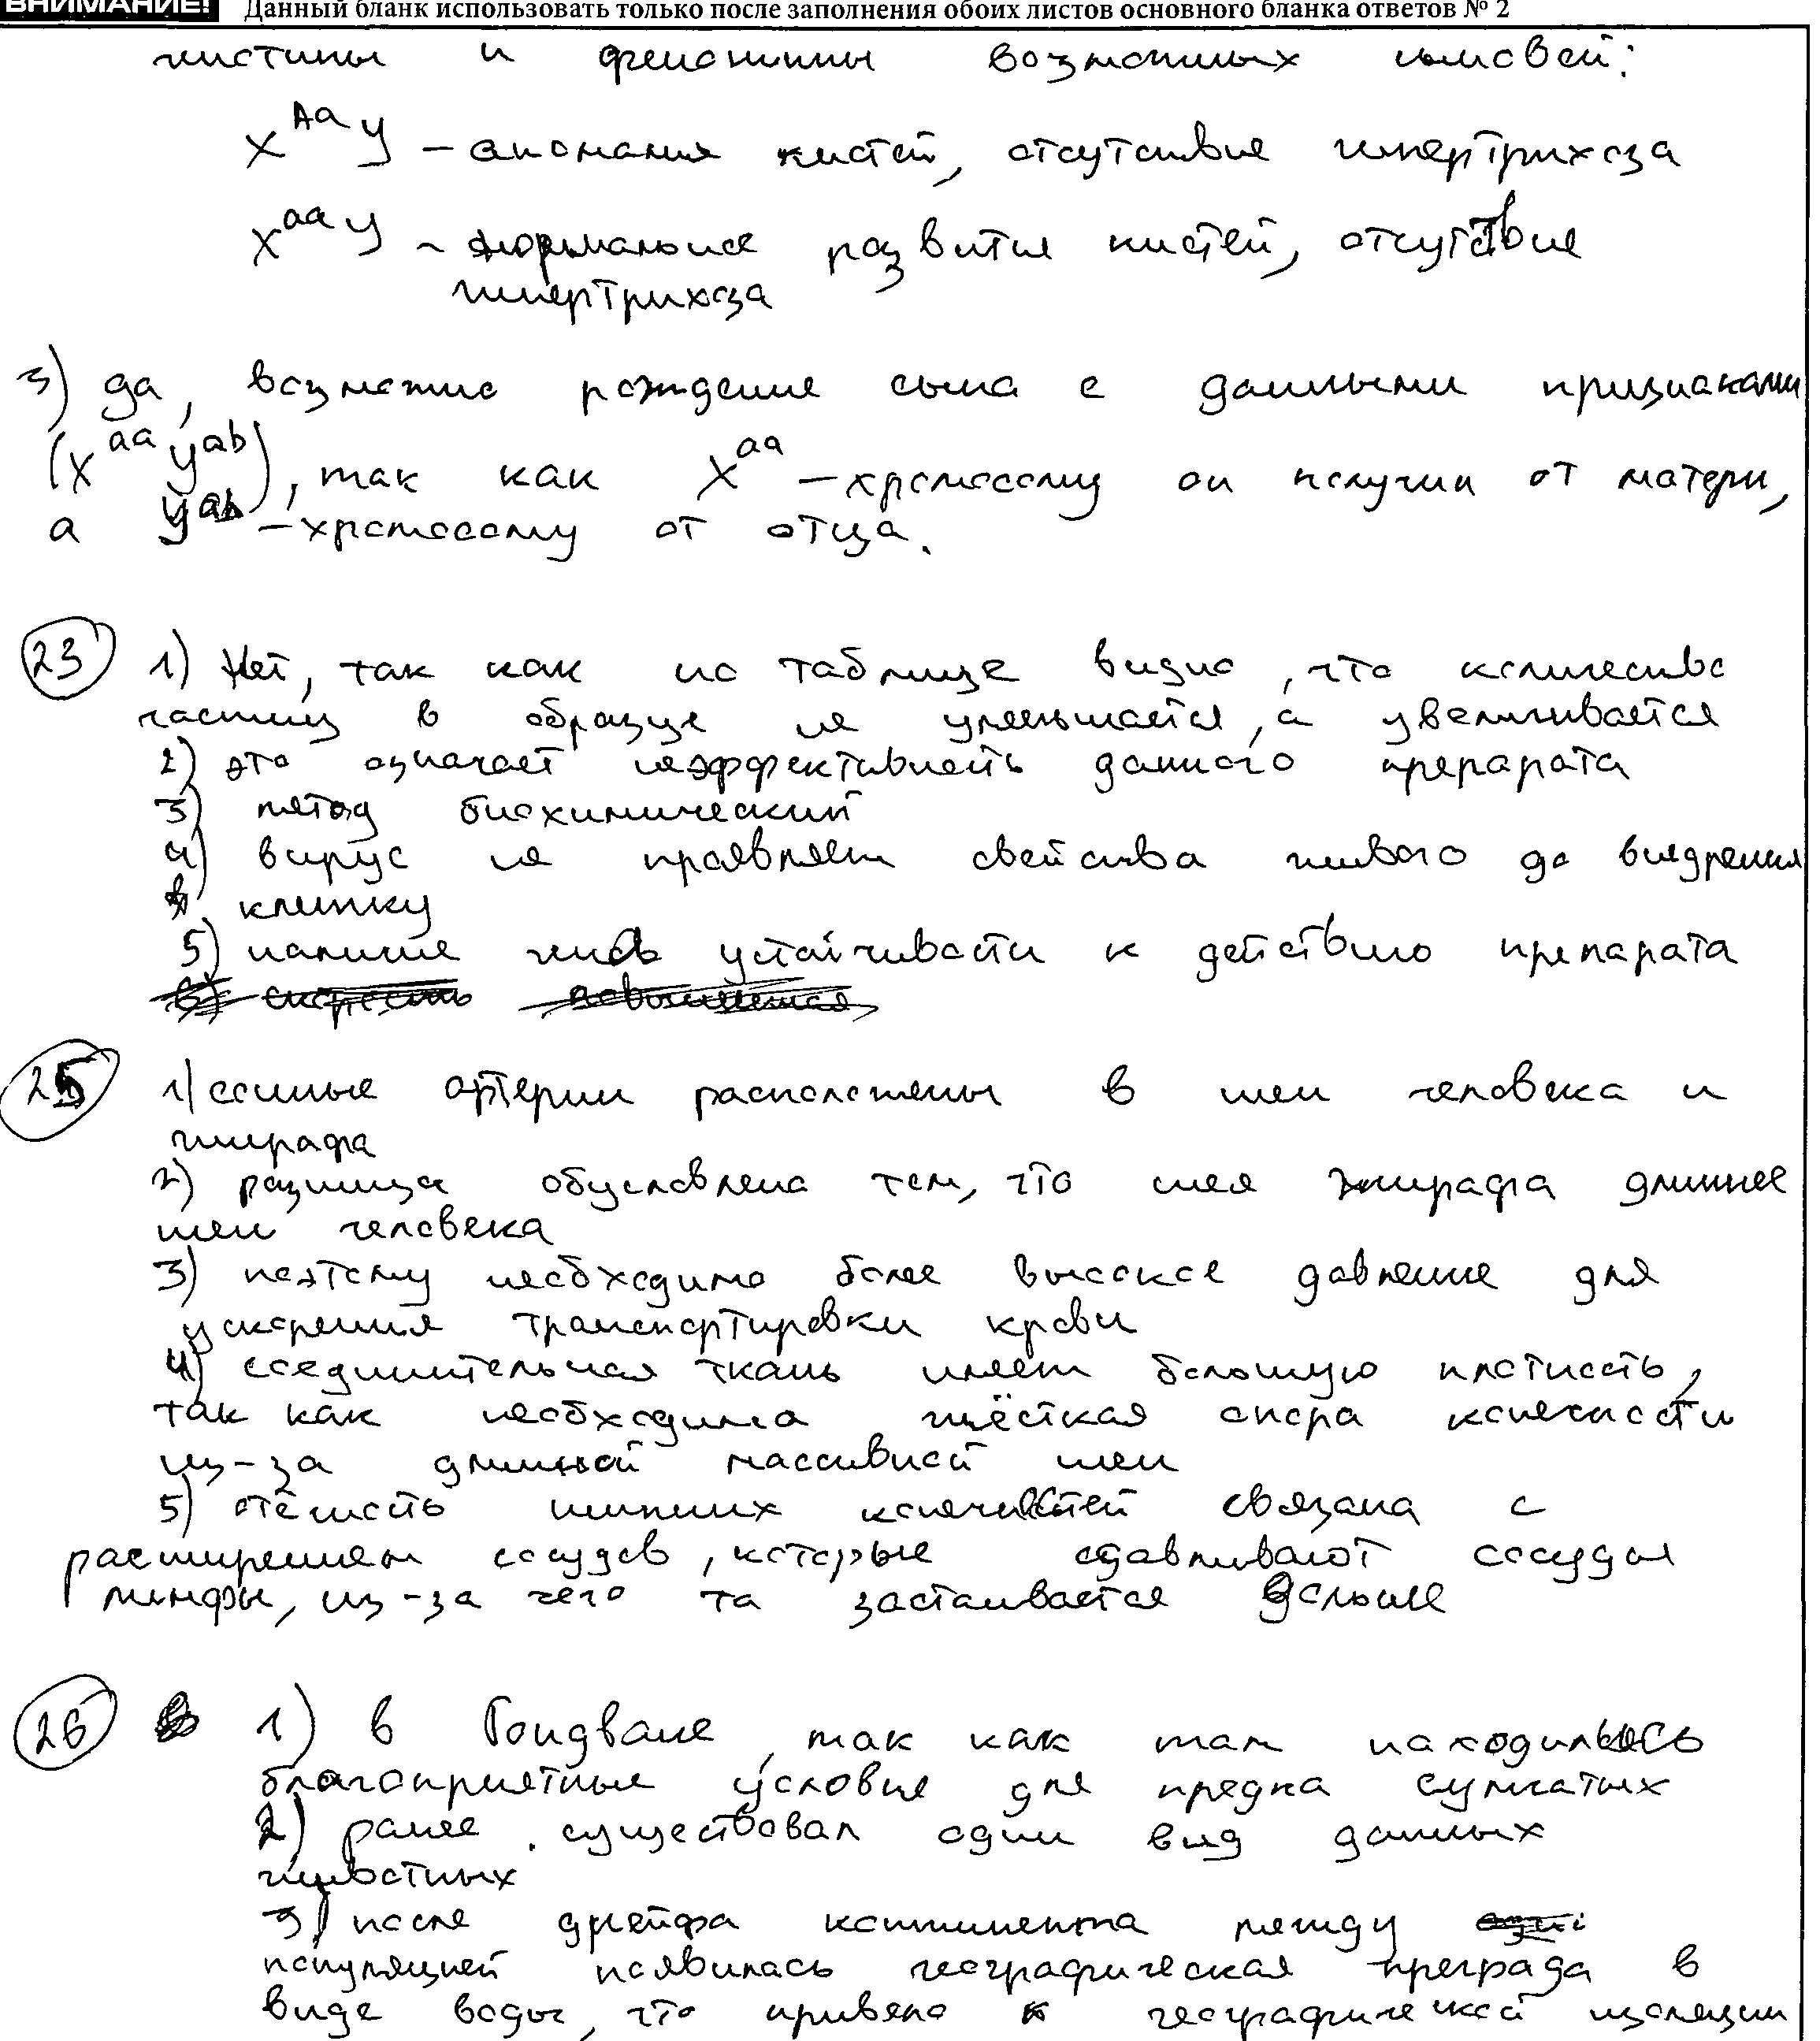 ВНИМАНИЕ! Данный бланк использовать только после заполнения обоих листов основного бланка ответов № 2
и фенотипы возможных
X^Aa y – аномалия кистей, отсутствие гипертрихоза
X^aa y – нормальное развитие кистей, отсутствие
гипертрихоза
3) да, возможно рождение сына с данными признаками
(X^aa y^ab), так как X^aa – хромосому он получил от матери,
а y^ab – хромосому от отца.
23 1) Нет, так как по таблице видно, что количество
частиц в образце не уменьшается, а увеличивается
2) это означает неэффективность данного препарата
3) метод биохимический
4) вирус не проявляет свойства живого до внедрения
в клетку
5) наличие гена устойчивости к действию препарата
25 1) сонные артерии расположены в шеи человека и
жирафа
2) разница обусловлена тем, что шея жирафа длиннее
шеи человека
3) поэтому необходимо более высокое давление для
ускорения транспортировки крови
4) соединительная ткань имеет большую плотность,
так как необходима жёсткая опора конечности
из-за длинной массивной шеи
5) отёчность нижних конечностей связана с
расширением сосудов, которые сдавливают сосуды
лимфы, из-за чего та застаивается дольше
26 1) в Гондване, так как там находились
благоприятные условие для предка сумчатых
2) ранее существовал один вид данных
животных
3) после дрейфа континента между
популяцией появилась географическая преграда в
виде воды, что привело к географической изоляции